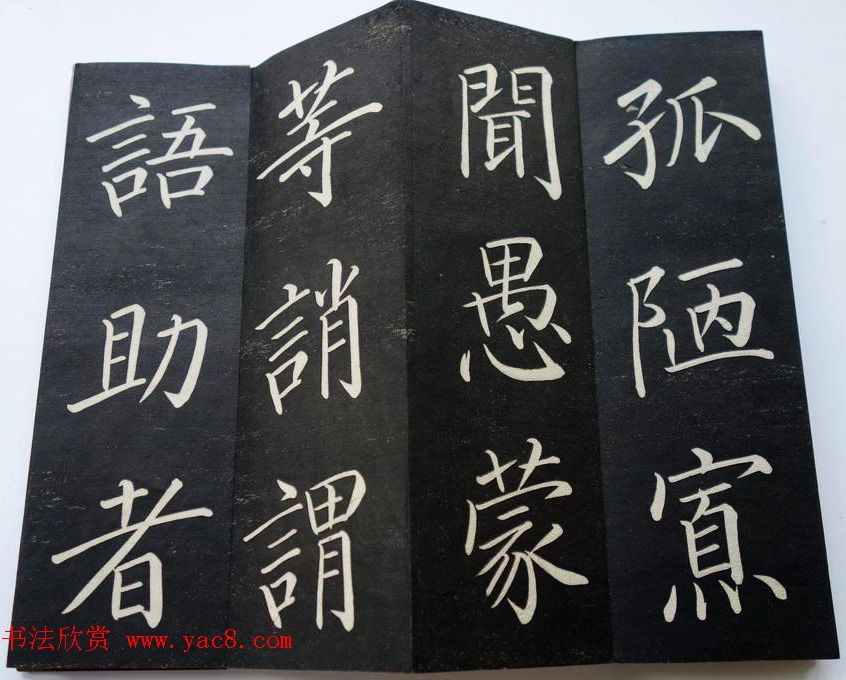 孤陋寡
聞愚蒙
等誚謂
語助者
书法欣赏 www.yac8.com